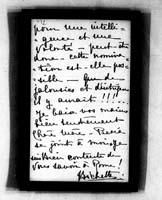 pour une intelli-
gence et une
volonté — peut-être
donc — cette nomina-
tion est-elle pos-
sible — Que de
jalousies et d'intrigues
il y aurait !!! —
Je baise vos mains
bien tendrement
Chère Mère — Pierre
se joint à moi, je
suis bien contente de
vous savoir à Rome !